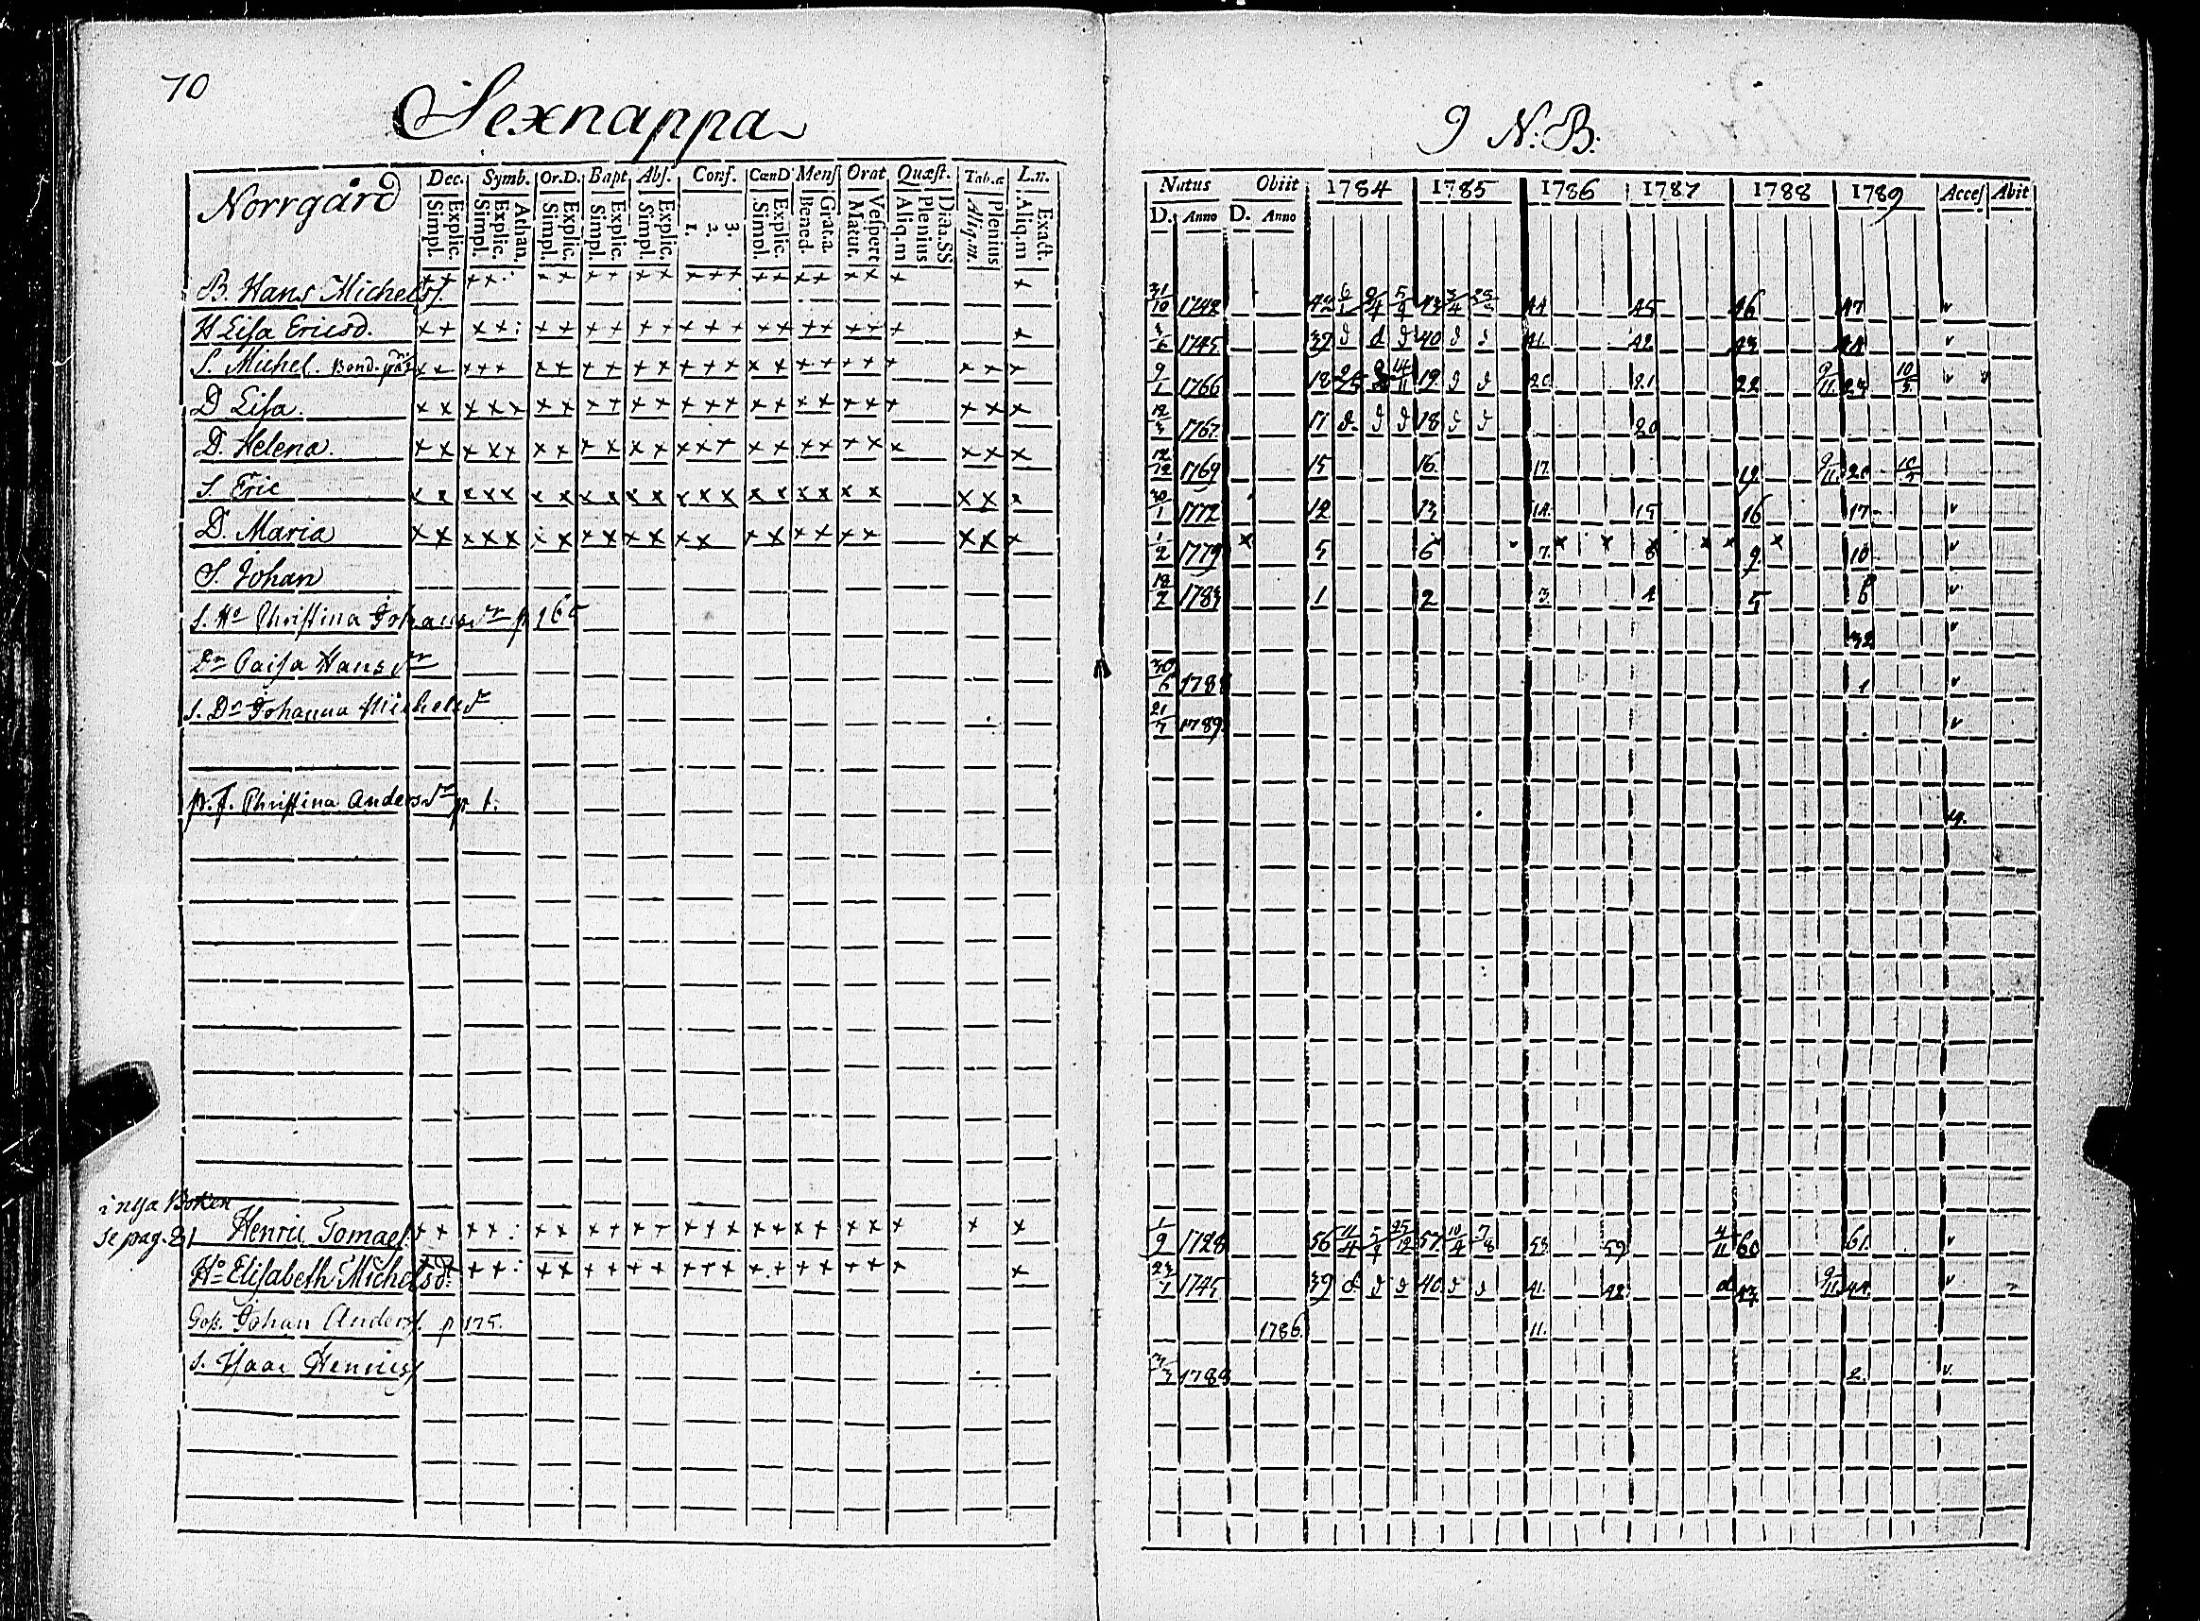 70
Sexnappa
9 N:B:
Norrgård
Dec. Symb. Or.D. Bapt. Abs. Conf. CœnD Mens Orat Quæst. Tab.œ L.n.
Explic. Simpl. Athan. Explic. Simpl. Explic. Simpl. Explic. Simpl. Explic. Simpl. 3. 2. 1. Explic. Simpl. Grat.a. Bened. Vespert Matut. Dicta.SS Plenius Aliq.m Plenius Aliq.m. Exact. Aliq.m
Natus Obiit 1784 1785 1786 1787 1788 1789 Acces Abit
D. Anno D. Anno
B. Hans Michelss. 31/10 1742 42 43 44 45 46 47
H Lisa Ericsd. 1745 39 40 41 42 43 44
S. Michel. 9/1 1766 18 19 20 21 22 9/11 23 10/5
D Lisa. 12/3 1767 17 18 20
D. Helena. 12/12 1769 15 16 17 19 9/11 20 10/5
S. Eric 30/1 1772 12 13 14 15 16 17
D. Maria 1/2 1779 5 6 7 8 9 10
S. Johan 18/2 1783 1 2 3 4 5 6
S. Ho Christina Johansdr p. 165 32
Dr Caisa Hansdr 30/6 1788 1
S. Dr Johanna Michelsd 21/7 1789
Christina Andersdr p 1. 19.
i nya Boken
se pag. 81 Henric Tomass. 1/9 1728 56 57 58 59 4/11 60 61
Ho Elisabeth Michelsd: 23/7 1745 39 40 41 42 43 9/11 44
Gos. Johan Anderss. p 175. 1786. 11.
S. Isaac Henricss 1788 2.